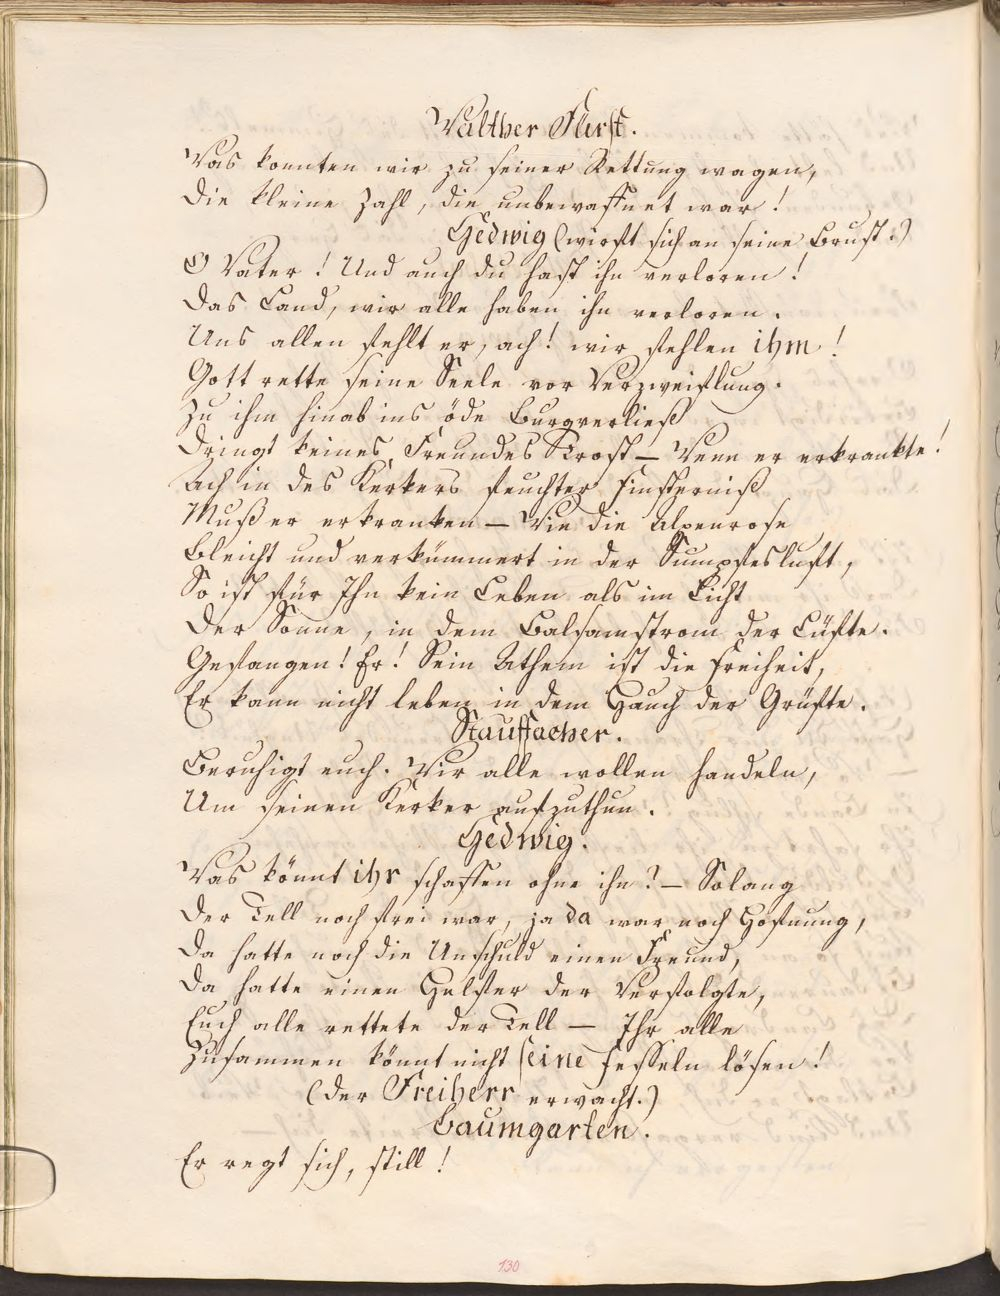 Walther Fürst.
Was konnten wir zu seiner Rettung wagen,
Die kleine Zahl, die unbewaffnet war!
Hedwig (wirft sich an seine Brust.)
O Vater! Und auch du hast ihn verloren!
Das Land, wir alle haben ihn verloren.
Uns allen fehlt er, ach! wir fehlen ihm!
Gott rette seine Seele vor Verzweiflung.
Zu ihm hinab ins öde Burgverließ
Dringt keines Freundes Trost – Wenn er erkrankte!
Ach in des Kerkers feuchter Finsterniß
Muß er erkranken – Wie die Alpenrose
Bleicht und verkümmert in der Sumpfesluft,
So ist für Ihn kein Leben als im Licht
Der Sonne, in dem Balsamstrom der Lüfte.
Gefangen! Er! Sein Athem ist die Freiheit,
Er kann nicht leben in dem Hauch der Grüfte.
Stauffacher.
Beruhigt euch. Wir alle wollen handeln,
Um seinen Kerker aufzuthun.
Hedwig.
Was könnt ihr schaffen ohne ihn? – Solang
Der Tell noch frei war, ja da war noch Hofnung,
Da hatte noch die Unschuld einen Freund,
Da hatte einen Helfer der Verfolgte,
Euch alle rettete der Tell – Ihr alle
Zusammen könnt nicht seine Fesseln lösen!
(Der Freiherr erwacht.)
Baumgarten.
Er regt sich, still!
130